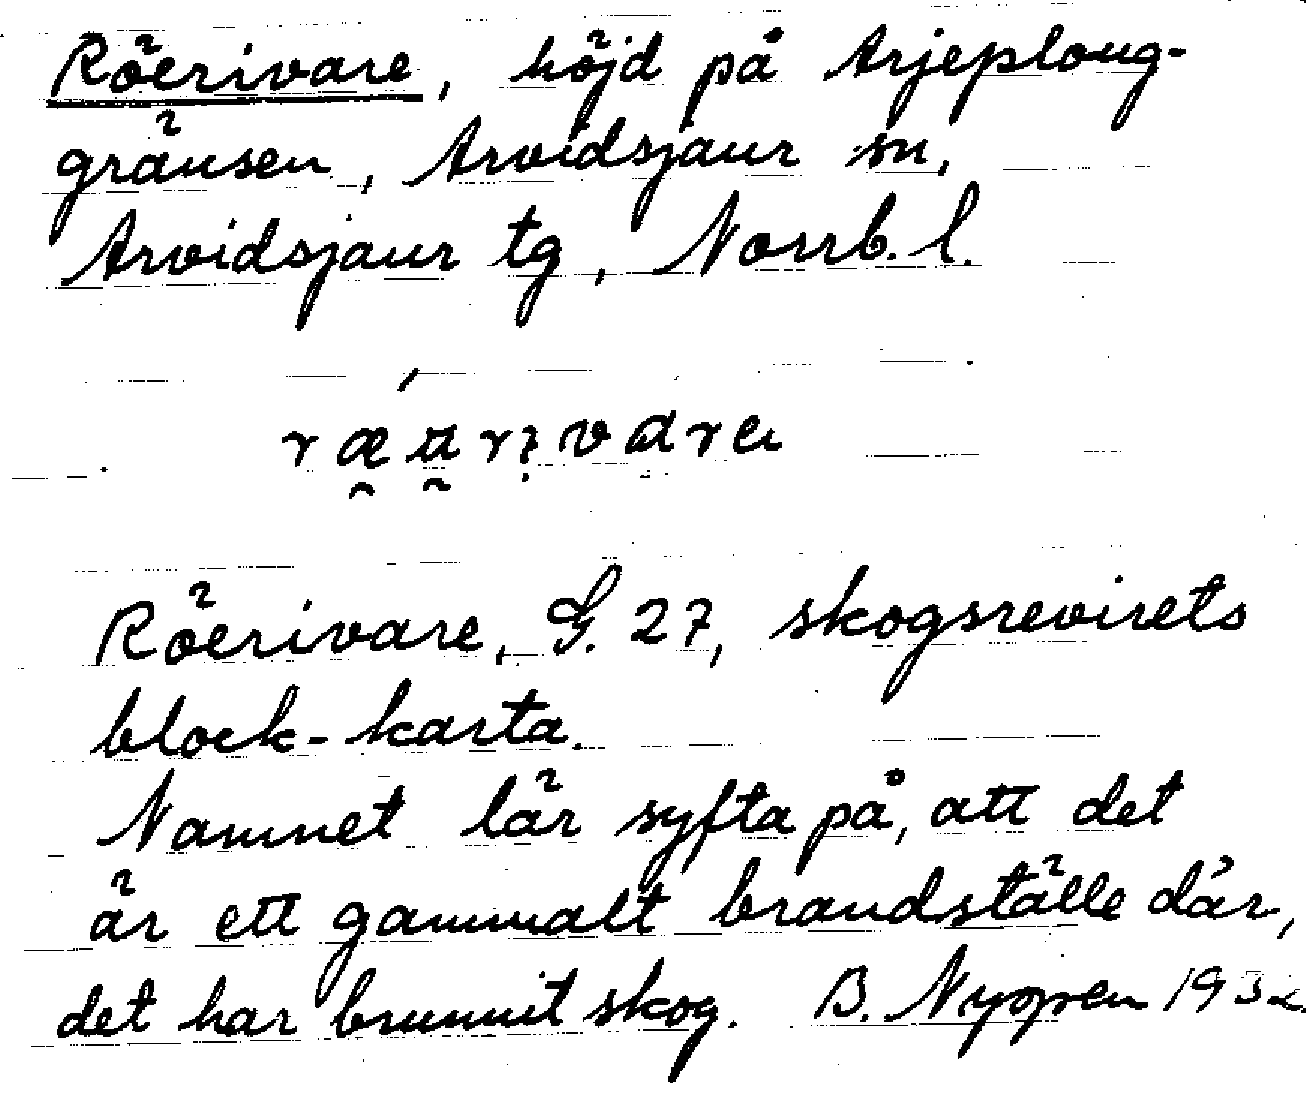 Röerivare, höjd på Arjeploug-
gränsen, Arvidsjaur sn,
Arvidsjaur tg, Norrb. l.
Röerivare, G. 27, skogsrevirets
block-karta.
Namnet lär syfta på, att det
är ett gammalt brandställe där,
det har brunnit skog. B. Nyppen 1932.